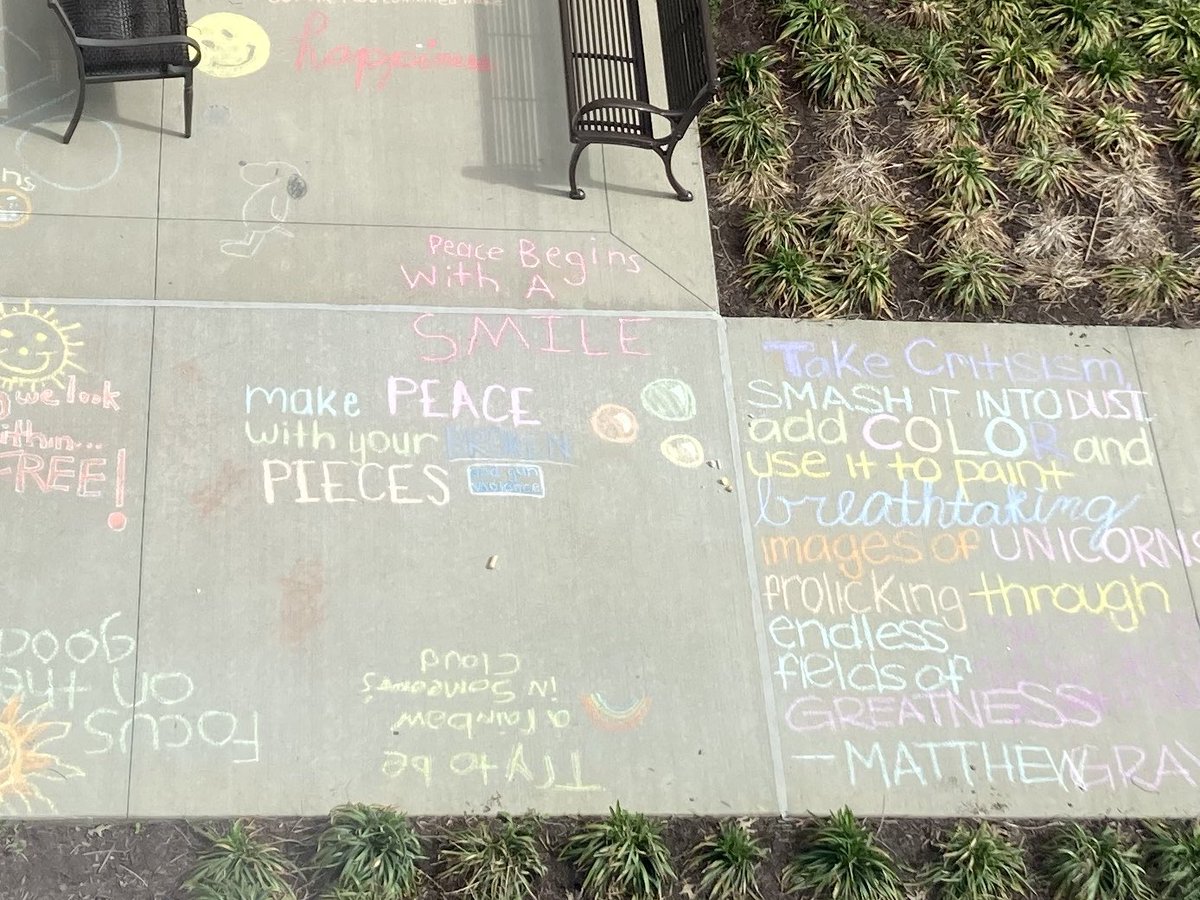 happiness
ns
Peace Begins
With A
SMILE
we look
ithin...
FREE!
make PEACE
with your BROKEN
PIECES
Take Critisism,
SMASH IT INTO DUST,
add COLOR and
use it to paint
breathtaking
images of UNICORNS
frolicking through
endless
fields of
GREATNESS
- MATTHEW GRAY
Focus
on the
good
Try to be
a rainbow
in Someone's
Cloud